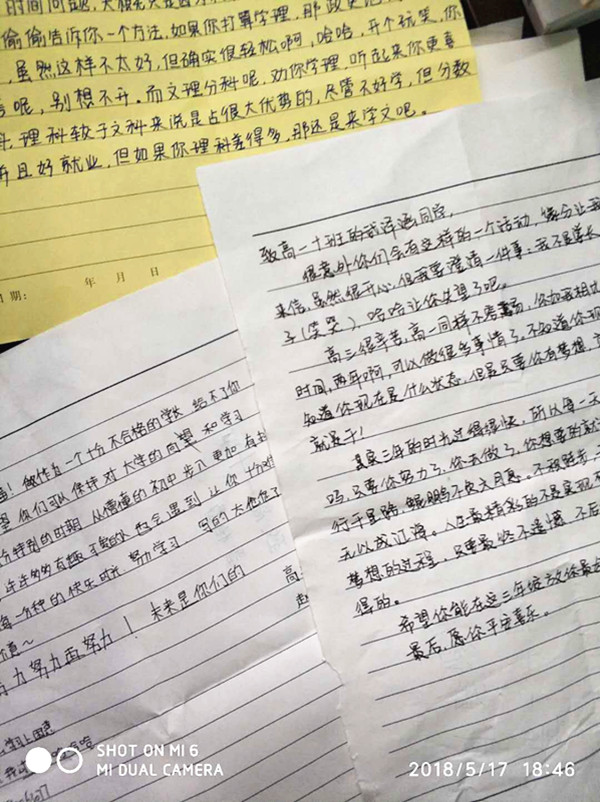 时间问题,大概
偷偷告诉你一个方法.如果你打算学理,那政史
,虽然这样不太好,但确实很轻松啊,哈哈,开个玩笑.你
呢,别想不开.而文理分科呢,劝你学理,听起来你更喜
理科较于文科来说是占很大优势的,尽管不好学,但分数
并且好就业,但如果你理科差得多,那还是来学文吧。
日期: 年 月 日
致高一十班的 同学,
很意外你们会有这样的一个活动,缘分让我
来信,虽然很开心,但我要澄清一件事:我不是学长
子(笑笑),哈哈让你失望了吧。
高三很辛苦,高一同样不容易,你如我相比
时间,两年啊,可以做很多事情了.不知道你现
知道你现在是什么状态,但是只要你有梦想,
就是干!
其实三年的时光过得很快,所以每一天
吗,只要你努力了,你去做了,你想要的就
行千里路, 鲲鹏不

无以成江海。人生最精彩的不是实现
梦想的过程,只要最终不遗憾,不后
得的。
希望你能在这三年绽放你最
最后,愿你平安喜乐。
做作为一个十分不合格的学长 给不了你
望 你们可以保持对大学的向望 和学习
分特别的时期 从懵懂的初中步入更加有
许许多多有趣 可爱的人 也会遇到让你
每一分钟的快乐时光 努力学习,
努力努力再努力! 未来是你们的
高
学习上困惑
SHOT ON MI 6
MI DUAL CAMERA
2018/5/17 18:46